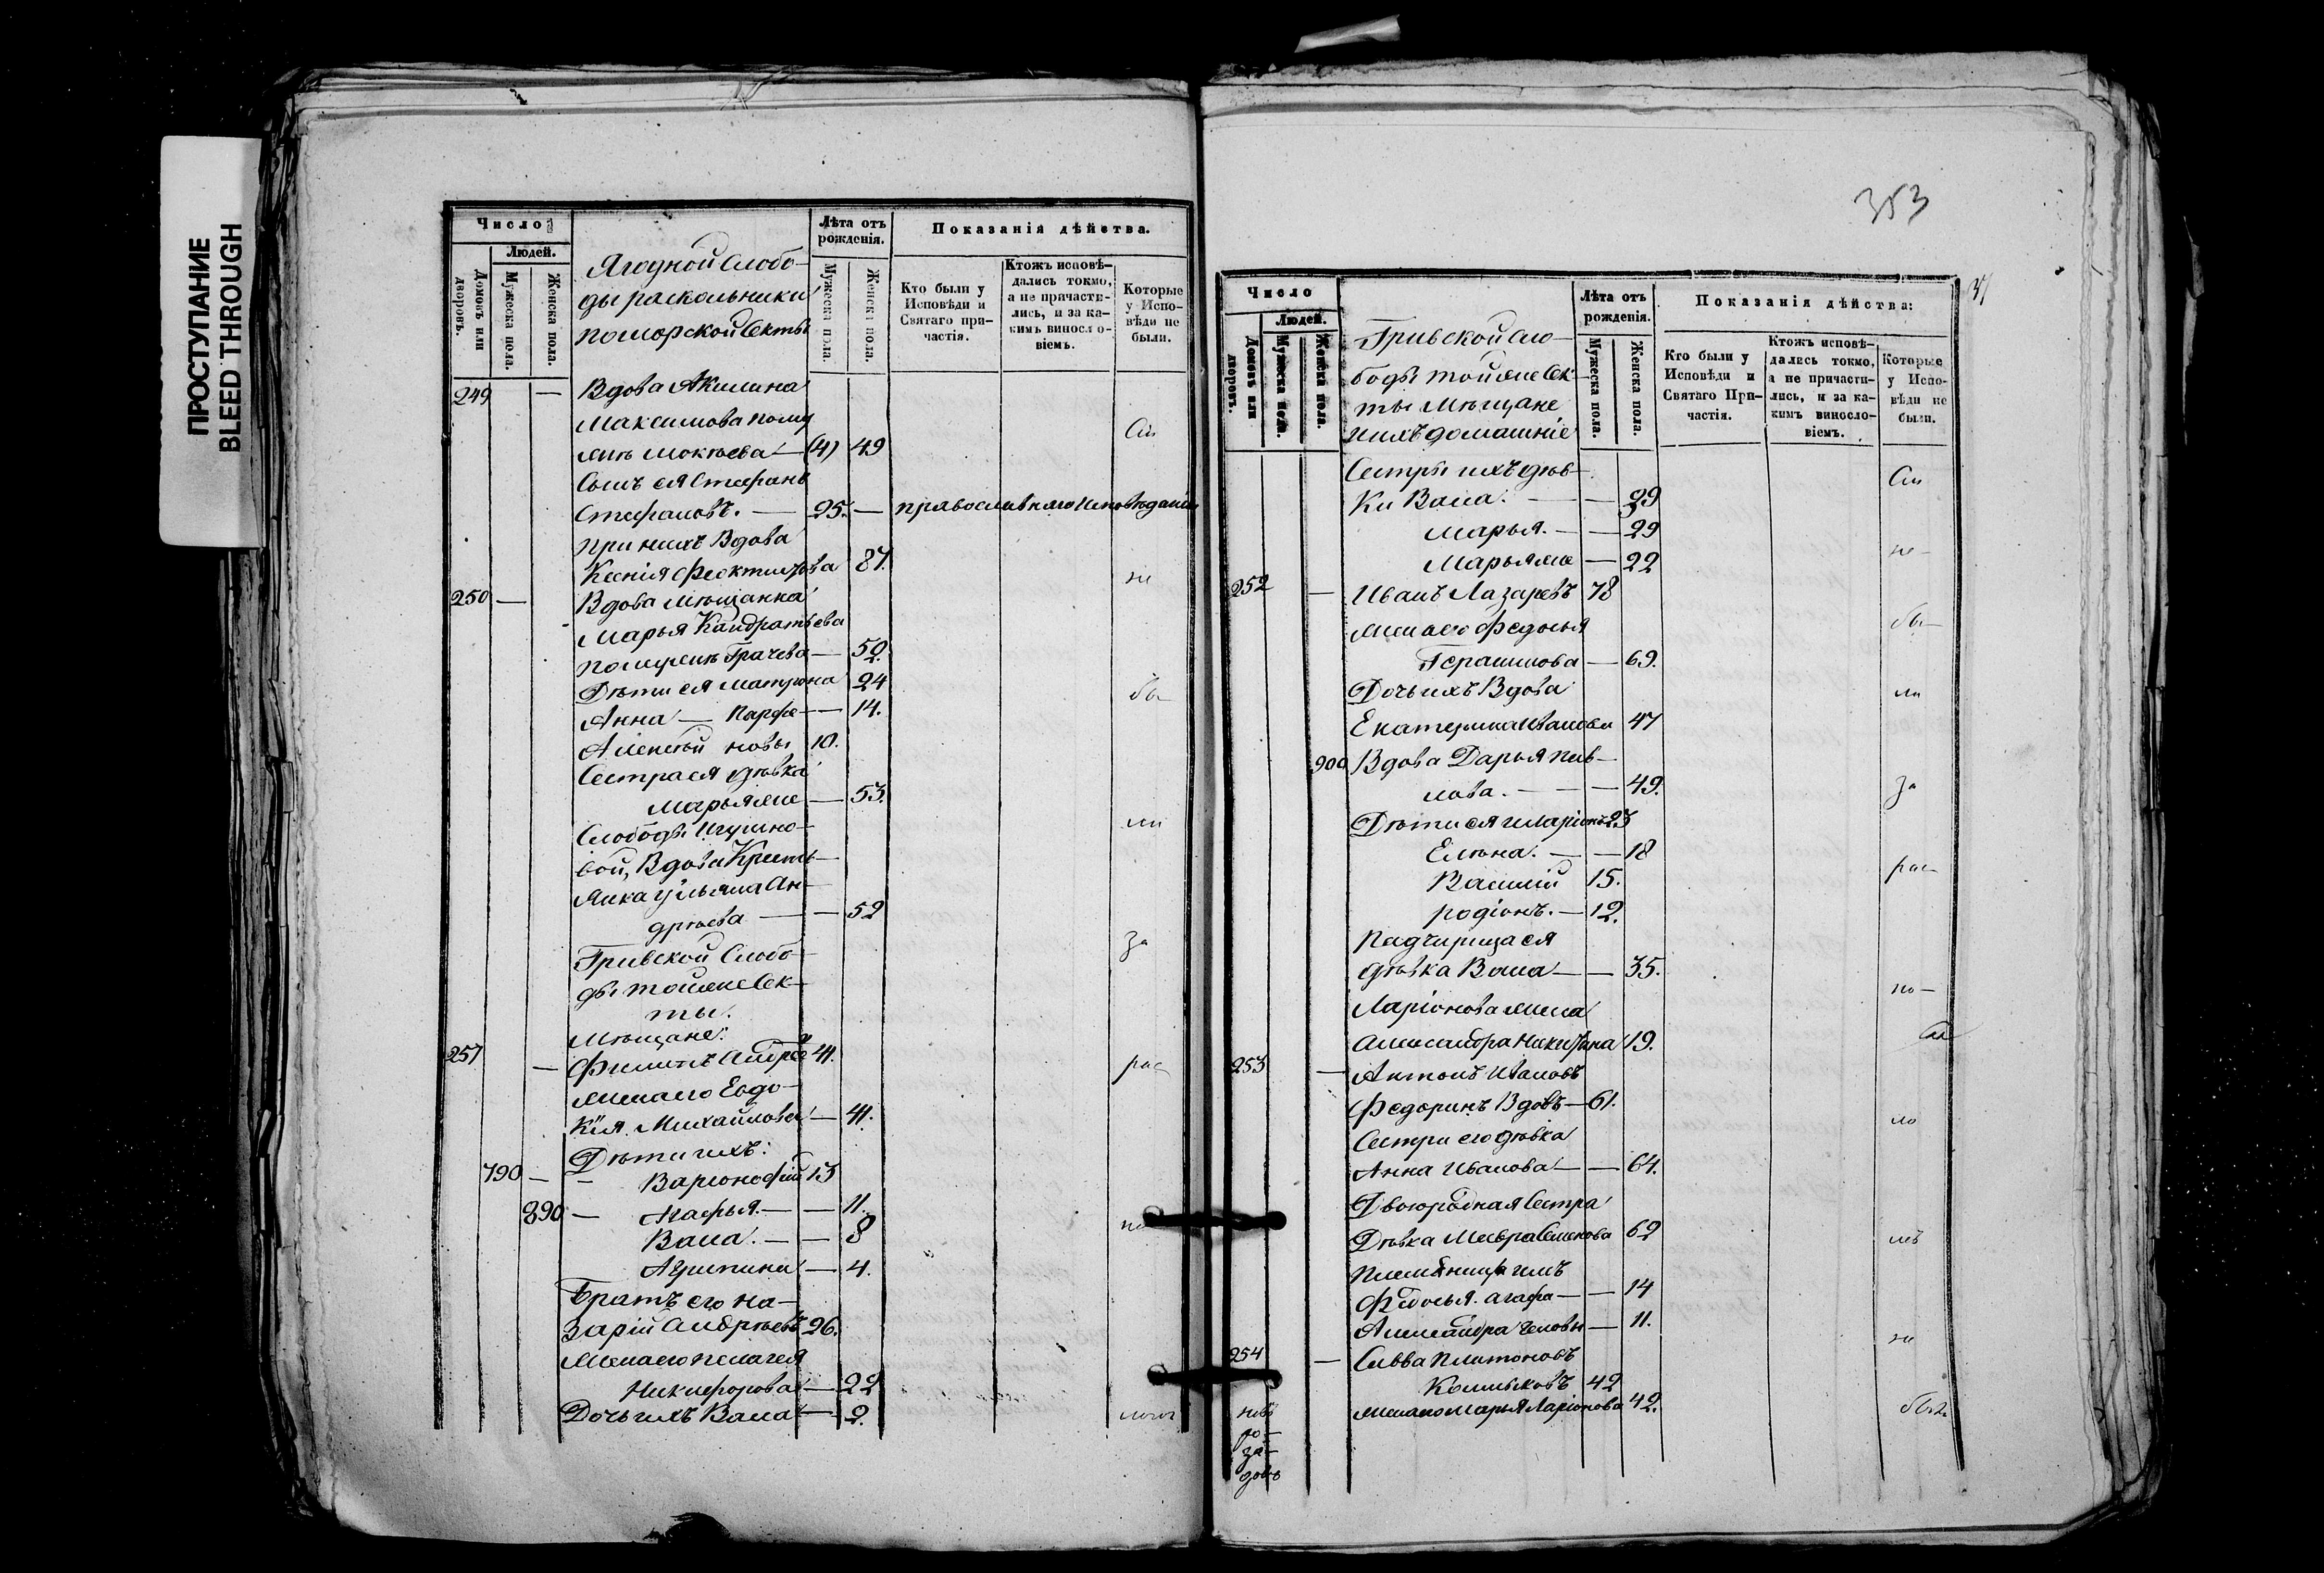 ПРОСТУПАНИЕ
BLEED THROUGH
Число
Людей.
Домовъ или дворовъ.
Мужеска пола.
Женска пола.
Ягодной Слобо-
ды раскольники
поморской Секты
Лѣта отъ рожденія.
Мужеска пола.
Женска пола.
Показанія дѣйства.
Кто были у Исповѣди и Святаго при-частія.
Ктожъ исповѣ-дались токмо, а не причасти-лись, и за ка-кимъ винослo-віемъ.
Которые у Испо-вѣди не были.
249 — Вдова Акилина
Максимова по му
жѣ Мокѣева — (4) 49 Сіи
Сынъ ея Стефанъ
Стефановъ. — 25. — православнаго исповѣданія
При нихъ Вдова
Ксенія Феоктистова 87. не
250 — Вдова Мѣщанка
Марья Кандратьева
по мужѣ Грачева — 52.
Дѣти ея Матрона 24 бы-
Анна — Парфе — 14.
Алексѣй новы 10.
Сестра ея дѣвка
Марьямне — 53.
Слободы Игумно- ли
вой, Вдова Кресть-
янка Ульяна Ан-
дрѣева — — 52
Гривской Слобо- за
ды той же Сек-
ты.
Мѣщане:
251 — Филипъ Андрее 41. рас
Жена его Евдо-
кія Михайлова — 41.
Дѣти ихъ:
790 — Варѳоѳой 13
890 — Агафья. — — 11.
Васса. — — 8
Агрипина — 4.
Братъ его На-
зарій Андрѣевъ 26.
Жена его Пелагея
Никифорова — 22
Дочь ихъ Васса — 2.
353
37
Число
Людей.
Домовъ или дворовъ.
Мужеска пола.
Женска пола.
Гривской Сло-
боды той же Сек-
ты Мѣщане
и ихъ домашніе
Лѣта отъ рожденія.
Мужеска пола.
Женска пола.
Показанія дѣйства:
Кто были у Исповѣди и Святаго При-частія.
Ктожъ исповѣ-дались токмо, а не причасти-лись, и за ка-кимъ винослo-віемъ.
Которые у Испо-вѣди не были.
Сестры ихъ дѣв- Сіи
ки Васса. — — 39
Марья. — — 29 не-
Марьямне — 22
252 — Иванъ Лазаревъ 78
Жена его Федосья бы-
Герасимова — 69.
Дочь ихъ Вдова ли
Екатерина Иванова 47
900 Вдова Дарья Пав-
лова. — — 49. за
Дѣти ея Иларіонъ 23
Елена. — — 18 рас-
Василій 15.
Родіонъ. — 12.
Падчирица ея
дѣвка Васса — — 35. ко-
Ларіонова жена
Александра Никитина 19.
253 — Антонъ Ивановъ
Федоринъ Вдовъ — 61. ло
Сестра его дѣвка
Анна Иванова — — 64.
Двоюродная Сестра
Дѣвка Мавра Семенова 62
Племянницы имъ
Федосья. Агафо — — 14
Александра Ченовы — 11. не
254 — Савва Платоновъ
42
Жена его Марья Ларіонова 42. были